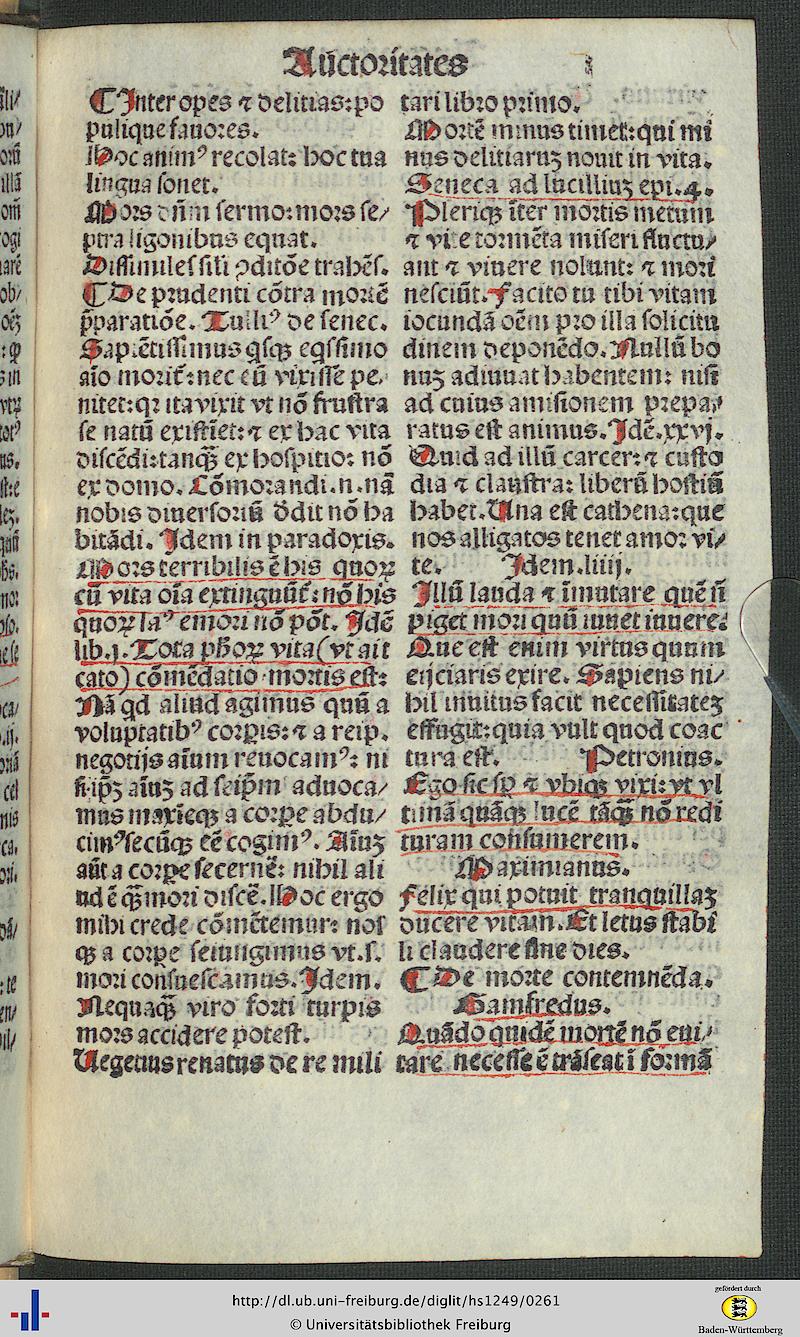 Auctoritates
¶ Inter opes ⁊ delitias: po
pulique fauores.
Hoc animꝰ recolat: hoc tua
lingua sonet.
Mors dñm sermo: mors sce/
ptra ligonibus equat.
Dissimiles sili ꝯditõe trahẽs.
¶ De prudenti cõtra mortẽ
p̃paratiõe. Tulliꝰ de senec.
Sapiẽtissimus qsqꝫ eqssimo
aĩo morit̃: nec eũ vixisse pe
nitet: qꝛ ita vixit vt nõ frustra
se natũ existĩet: ⁊ ex hac vita
discẽdi: tanqꝫ̃ ex hospitio: nõ
ex domo. Cõmorandi .n. nã
nobis diuersoriũ ddit nõ ha
bitãdi. Idem in paradoxis.
Mors terribilis ẽ his quoꝝ
cũ vita oĩa extinguũt̃: nõ his
quoꝝ laꝰ emori nõ põt. Idẽ
lib. j. Tota ph̃oꝝ vita (vt ait
cato) cõmẽdatio mortis est:
Nã qd aliud agimus quũ a
voluptatibꝰ corpis: ⁊ a reip.
negotijs aĩum reuocamꝰ: ni
si ipꝫ aĩuꝫ ad seip̃m aduoca/
mus maxĩeqꝫ a corpe abdu/
cimꝰ secũqꝫ eẽ cogimꝰ. Aĩuꝫ
aũt a corpe secernẽ: nihil ali
ud ẽ qꝫ̃ mori discẽ. Hoc ergo
mihi crede cõmẽtemur: nos
qꝫ a corpe seiungimus vt .s.
mori consuescamus. Idem.
Nequaqꝫ̃ viro forti turpis
mors accidere potest.
Uegetius renatus de re mili
tari libro primo.
Mortẽ minus timet: qui mi
nus delitiaruꝫ nouit in vita.
Seneca ad lucilliuꝫ epi. 4.
Pleriqꝫ ĩter mortis metum
⁊ vite tormẽta miseri fluctu/
ant ⁊ viuere nolunt: ⁊ mori
nesciũt. Facito tu tibi vitam
iocundã oẽm pro illa solicitu
dinem deponẽdo. Nullũ bo
nuꝫ adiuuat habentem: nisi
ad cuius amisionem prepa/
ratus est animus. Idẽ. xxvj.
Quid ad illũ carcer: ⁊ custo
dia ⁊ claustra: liberũ hostiũ
habet. Una est cathena: que
nos alligatos tenet amor vi/
te. Idem. liiij.
Illũ lauda ⁊ ĩmutare quẽ ñ
piget mori quũ iuuet iuuere:
Que est enim virtus quum
eijciaris exire. Sapiens ni/
hil inuitus facit necessitateꝫ
effugit: quia vult quod coac
tura est. Petronius.
Ego sic sp̃ ⁊ vbiqꝫ vixi: vt vl
timã quãqꝫ lucẽ tãqꝫ̃ nõ redi
turam consumerem.
Maximianus.
Felix qui potuit tranquillaꝫ
ducere vitam. Et letus stabi
li claudere fine dies.
¶ De morte contemnẽda.
Gamfredus.
Quãdo quidẽ mortẽ nõ eui/
tare necesse ẽ trãseat ĩ formã
http://dl.ub.uni-freiburg.de/diglit/hs1249/0261
© Universitätsbibliothek Freiburg
gefördert durch
Baden-Württemberg